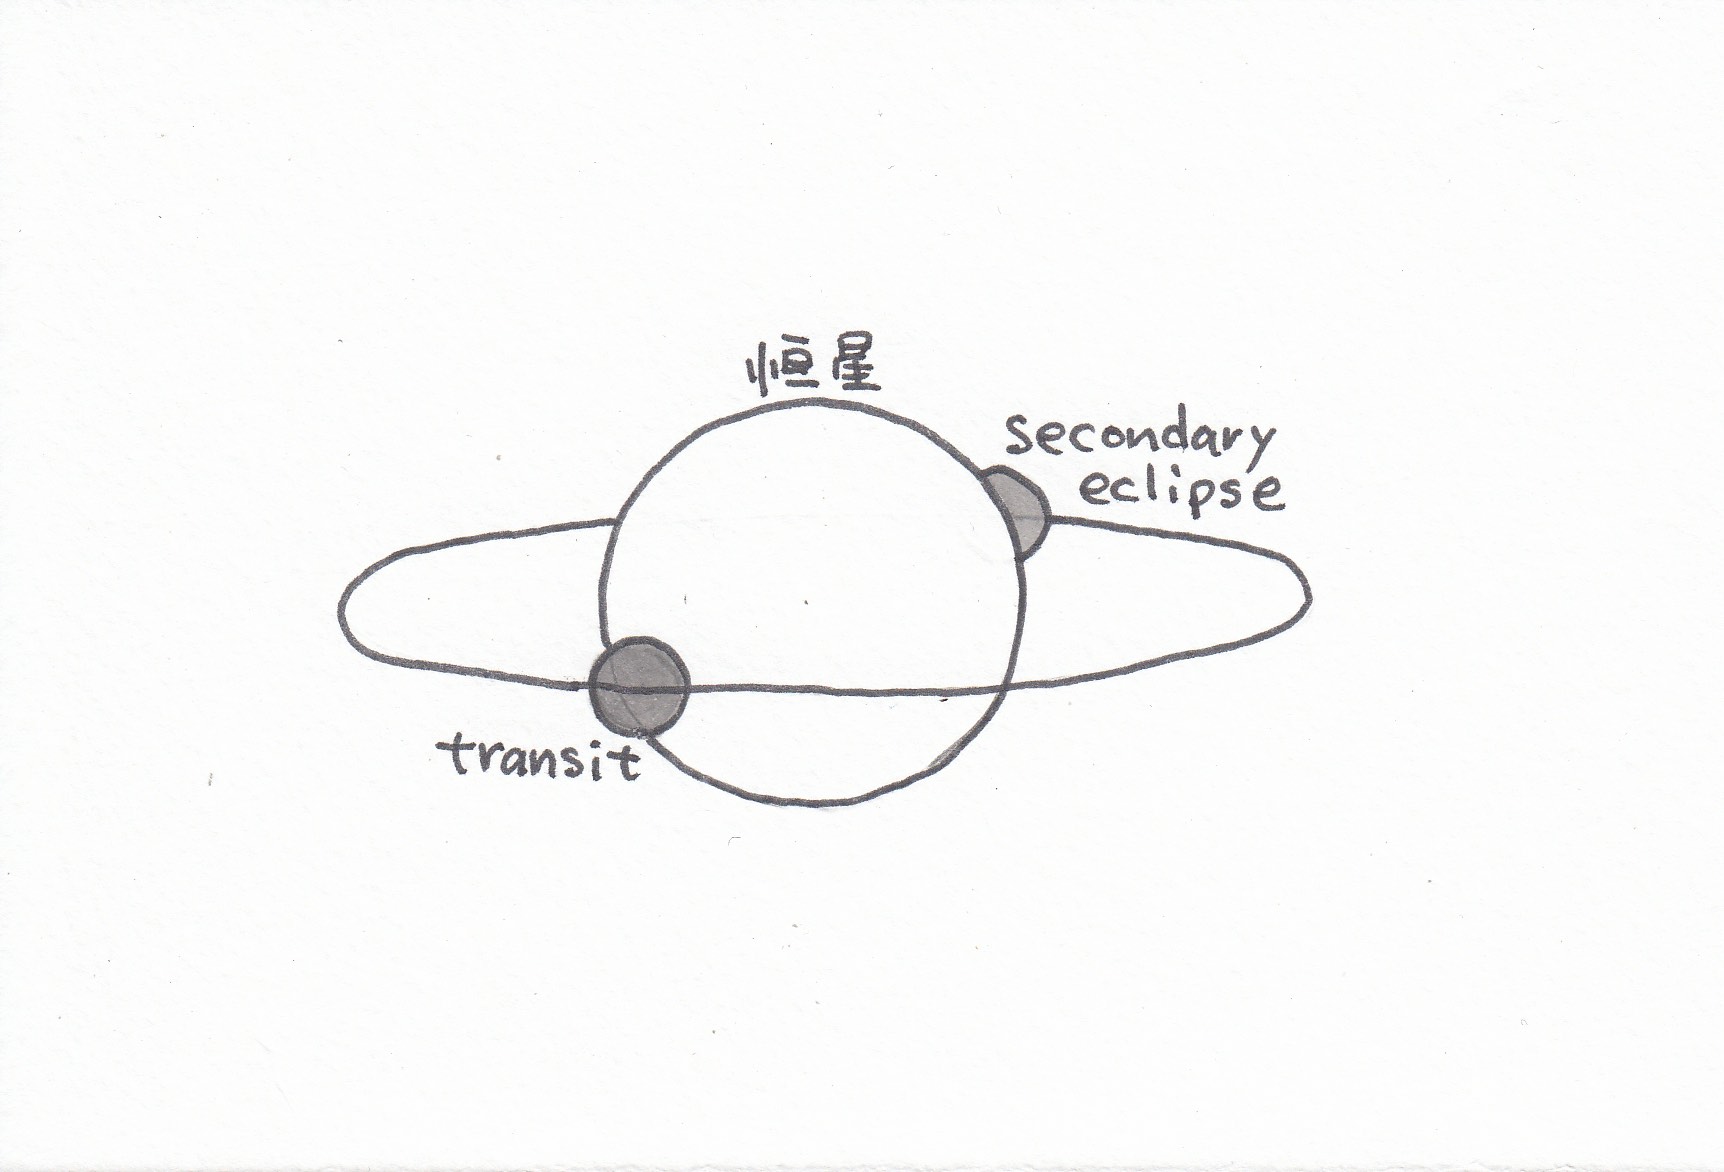 恒星
secondary
eclipse
transit